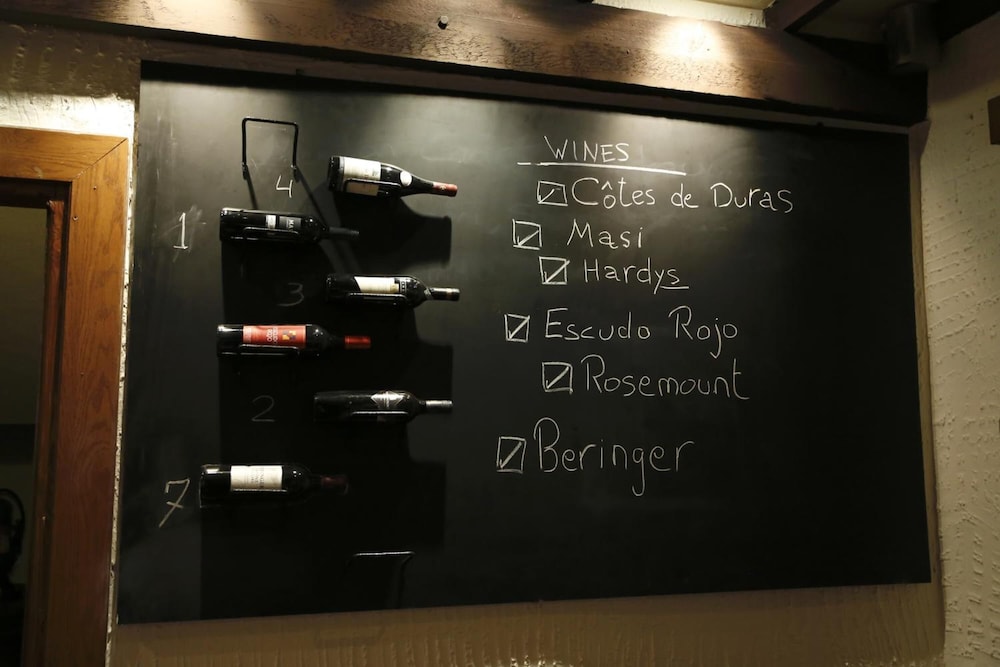 4
1
3
2
7
WINES
Côtes de Duras
Masi
Hardys
Escudo Rojo
Rosemount
Beringer